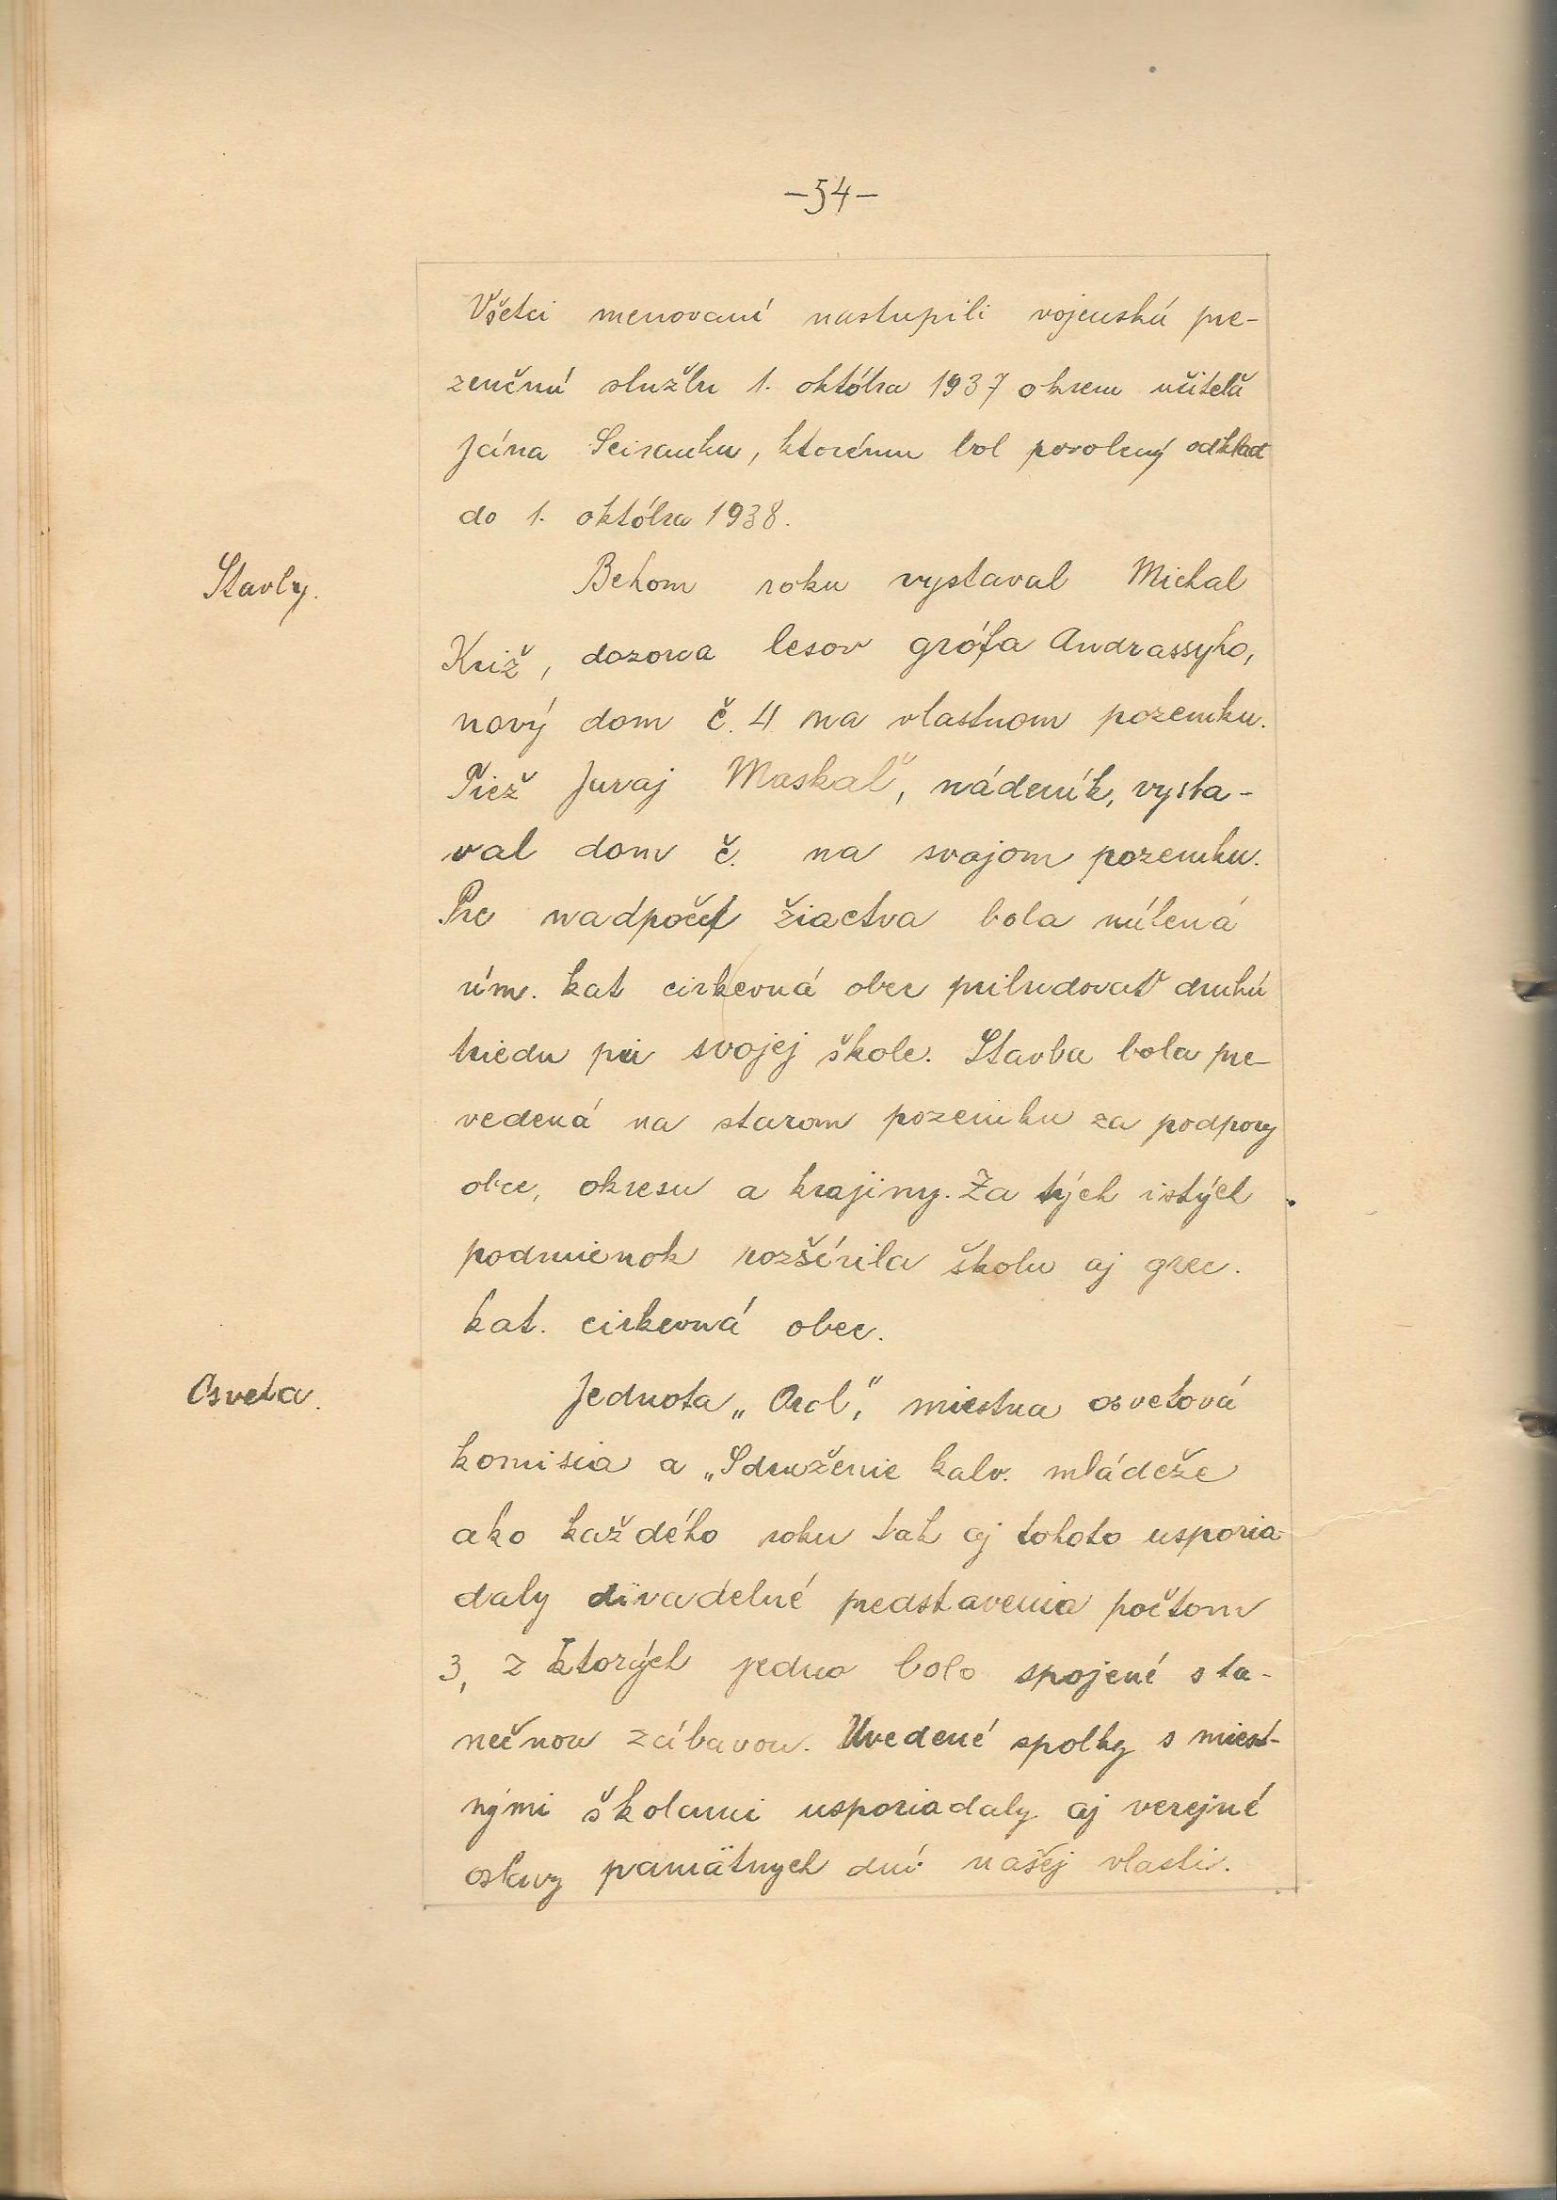 -54-
Všetci menovaní nastupili vojenskú pre-
zenčnú službu 1. októbra 1937 okrem učiteľa
Jána, ktorému bol povolený odklad
do 1. októbra 1938.
Stavby.
Behom roku vystaval Michal
Kríž, dozorca lesov grófa Andrassyho,
nový dom č. 4 na vlastnom pozemku.
Tiež Juraj Maskaľ, nádeník, vysta-
val dom č. na svojom pozemku.
Pre nadpočet žiactva bola nútená
rím. kat cirkevná obec pribudovať druhú
triedu pri svojej škole. Stavba bola pre-
vedená na starom pozemku za podpory
obce, okresu a krajiny. Za tých istých
podmienok rozšírila školu aj grec.
kat. cirkevná obec.
Osveta.
Jednota „Orol," miestna osvetová
komisia a „Sdruženie kalv. mládeže
ako každého roku tak aj tohoto usporia-
daly divadelné predstavenia počtom
3, z ktorých jedno bolo spojené s ta-
nečnou zábavou. Uvedené spolky s miest-
nými školami usporiadaly aj verejné
oslavy pamätnych dní našej vlasti.